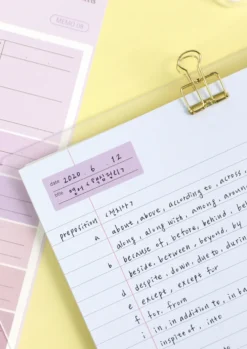 date 2020 6 12
title 영어 <전치사 정리>
preposition <전치사>
a about, above, according to, across,
along, along with, among, around
b because of, before, behind, below
beside, between, beyond, by
d despite, down, due to, during
e except, except for
f for, from
i in, in addition to, in
inspite of, into